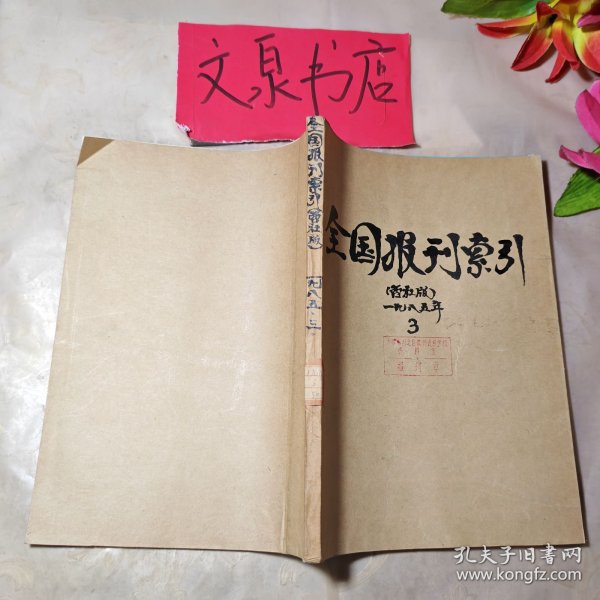 文泉书店
全国报刊索引(哲社版)
一九八五.三.
全国报刊索引
(哲社版)
一九八五年
3
孔夫子旧书网
www.kongfz.com